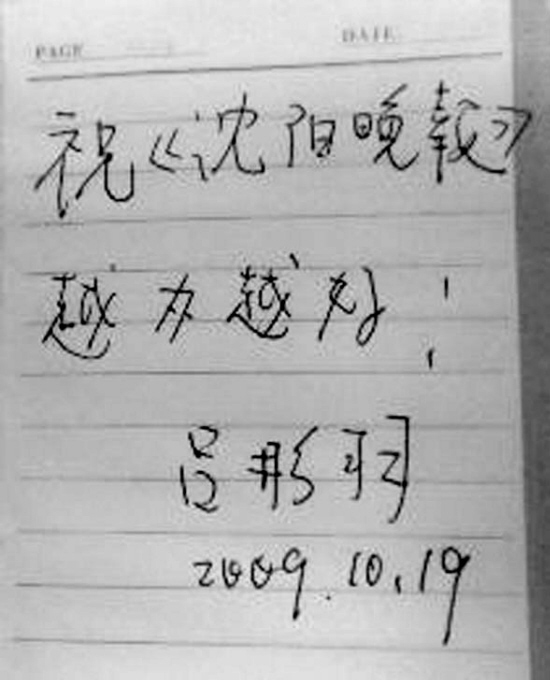 PAGE DATE
祝《沈阳晚報》
越办越好!
吕彤羽
2009.10.19